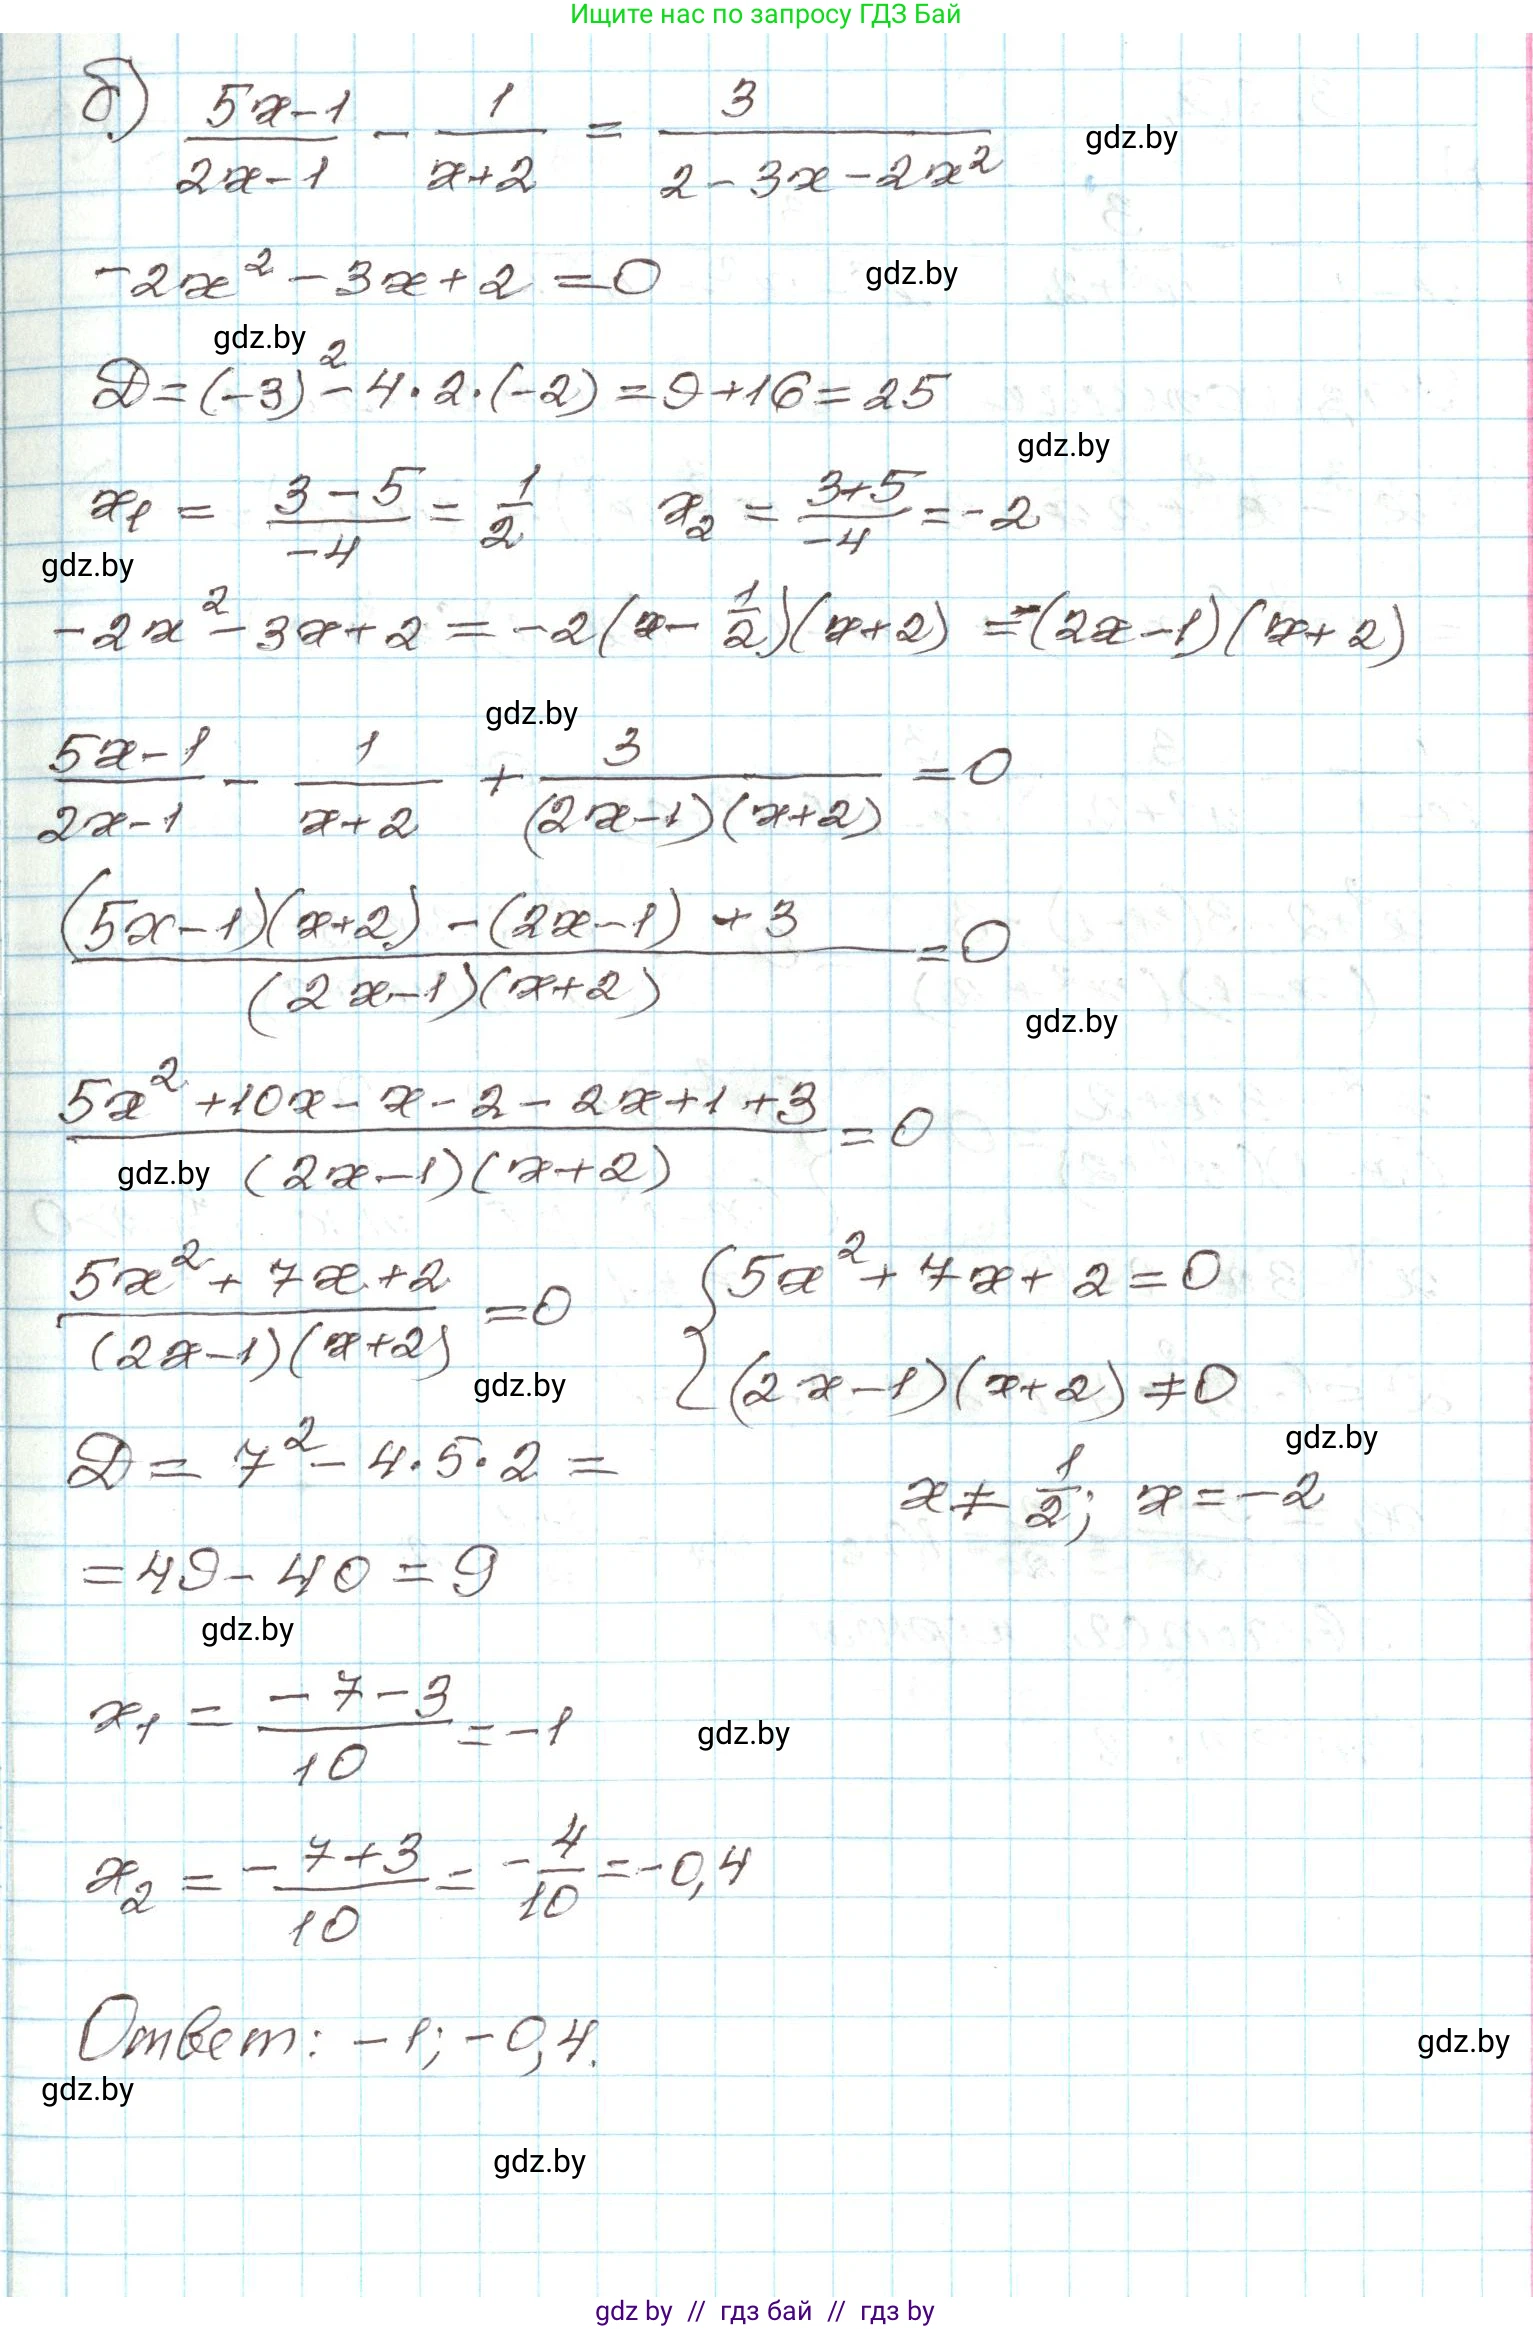 Ищите нас по запросу ГДЗ Бай
б) (5x-1)/(2x-1) - 1/(x+2) = 3/(2-3x-2x²)
gdz.by
-2x² - 3x + 2 = 0
gdz.by
gdz.by
Д = (-3)² - 4·2·(-2) = 9+16 = 25
gdz.by
x₁ = (3-5)/(-4) = 1/2 x₂ = (3+5)/(-4) = -2
gdz.by
-2x² - 3x + 2 = -2(x - 1/2)(x+2) = -(2x-1)(x+2)
gdz.by
(5x-1)/(2x-1) - 1/(x+2) + 3/((2x-1)(x+2)) = 0
((5x-1)(x+2) - (2x-1) + 3)/((2x-1)(x+2)) = 0
gdz.by
(5x² + 10x - x - 2 - 2x + 1 + 3)/((2x-1)(x+2)) = 0
gdz.by
(5x² + 7x + 2)/((2x-1)(x+2)) = 0 { 5x² + 7x + 2 = 0
(2x-1)(x+2) ≠ 0
gdz.by
gdz.by
Д = 7² - 4·5·2 =
x ≠ 1/2; x = -2
= 49 - 40 = 9
gdz.by
x₁ = (-7-3)/10 = -1
gdz.by
x₂ = (-7+3)/10 = -4/10 = -0,4
Ответ: -1; -0,4.
gdz.by
gdz.by
gdz.by
gdz by // гдз бай // гдз by